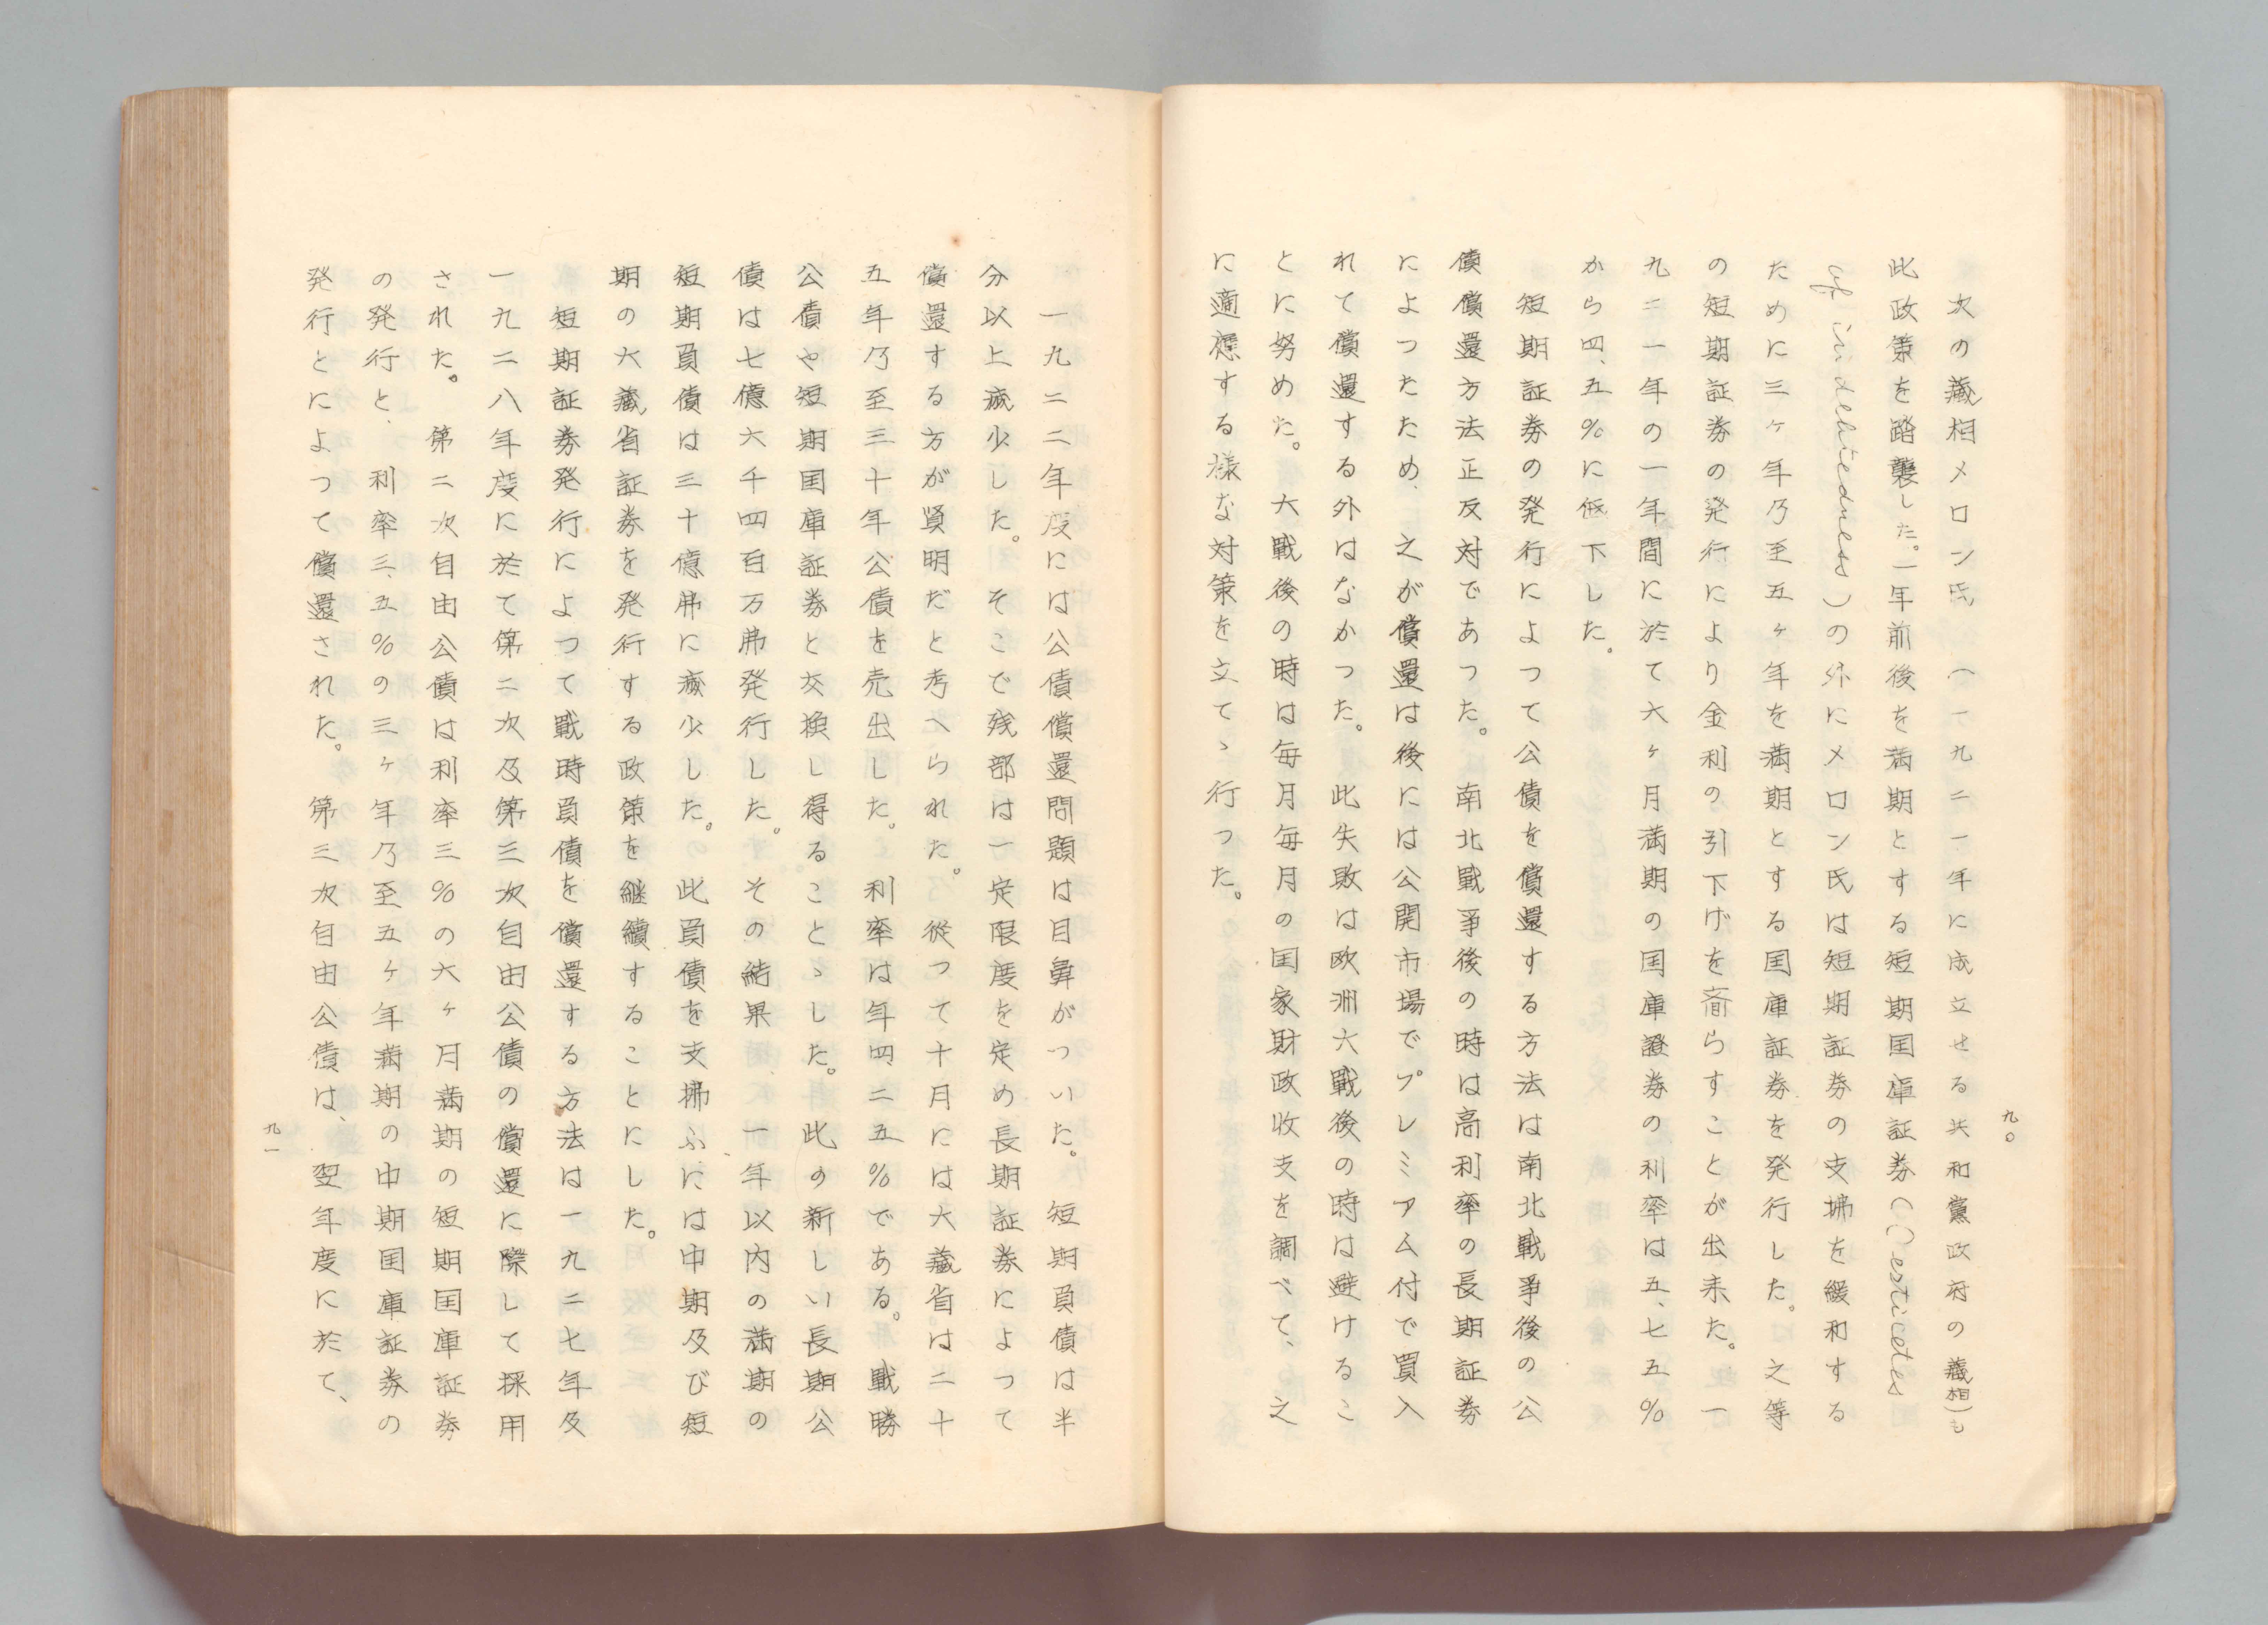 九〇
次の蔵相メロン氏(一九二一年に成立せる共和黨政府の蔵相)も
此政策を踏襲した。一年前後を満期とする短期国庫証券(Certicetes
of indebtednes)の外にメロン氏は短期証券の支拂を緩和する
ために三ヶ年乃至五ヶ年を満期とする国庫証券を発行した。之等
の短期証券の発行により金利の引下げを齎らすことが出来た。一
九二一年の一年間に於て六ヶ月満期の国庫證券の利率は五、七五%
から四、五%に低下した。
短期証券の発行によつて公債を償還する方法は南北戰爭後の公
債償還方法正反対であつた。南北戰爭後の時は高利率の長期証券
によつたため、之が償還は後には公開市場でプレミアム付で買入
れて償還する外はなかつた。此失敗は欧洲大戰後の時は避けるこ
とに努めた。大戰後の時は毎月毎月の国家財政收支を調べて、之
に適應する様な対策を立てゝ行つた。
一九二二年度には公債償還問題は目鼻がついた。短期負債は半
分以上減少した。そこで残部は一定限度を定め長期証券によつて
償還する方が賢明だと考へられた。従つて十月には大蔵省は二十
五年乃至三十年公債を売出した。利率は年四、二五%である。戰勝
公債や短期国庫証券と交換し得ることゝした。此の新しい長期公
債は七億六千四百万弗発行した。その結果、一年以内の満期の
短期負債は三十億弗に減少した。此負債を支拂ふには中期及び短
期の大蔵省証券を発行する政策を継續することにした。
短期証券発行によつて戰時負債を償還する方法は一九二七年及
一九二八年度に於て第二次及第三次自由公債の償還に際して採用
された。第二次自由公債は利率三%の六ヶ月満期の短期国庫証券
の発行と、利率三、五%の三ヶ年乃至五ヶ年満期の中期国庫証券の
発行とによつて償還された。第三次自由公債は、翌年度に於て、
九一